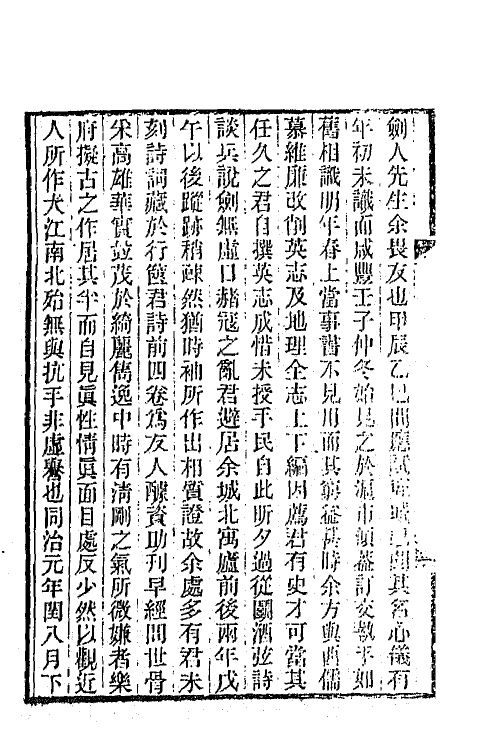 劍人先生余畏友也甲辰乙巳間應試城已聞其名心儀有
年初未識面咸豐壬子仲冬始見之於滬市傾蓋訂交歡乎如
舊相識明年春上當事書不見用而其窮益甚時余方與西儒
慕維廉改削英志及地理全志上下編因薦君有史才可當其
任久之君自撰英志成惜未授手民自此昕夕過從鬬酒弦詩
談兵說劍無虛日赭冦之亂君避居余城北寓廬前後兩年戊
午以後蹤跡稍疎然猶時袖所作出相質證故余處多有君未
刻詩詞藏於行篋君詩前四卷爲友人醵資助刊早經問世骨
釆高雄華實竝茂於綺麗雋逸中時有淸剛之气所微嫌者樂
府擬古之作居其半而自見眞性情眞面目處反少然以觀近
人所作大江南北殆無與抗手非虛譽也同治元年閏八月下